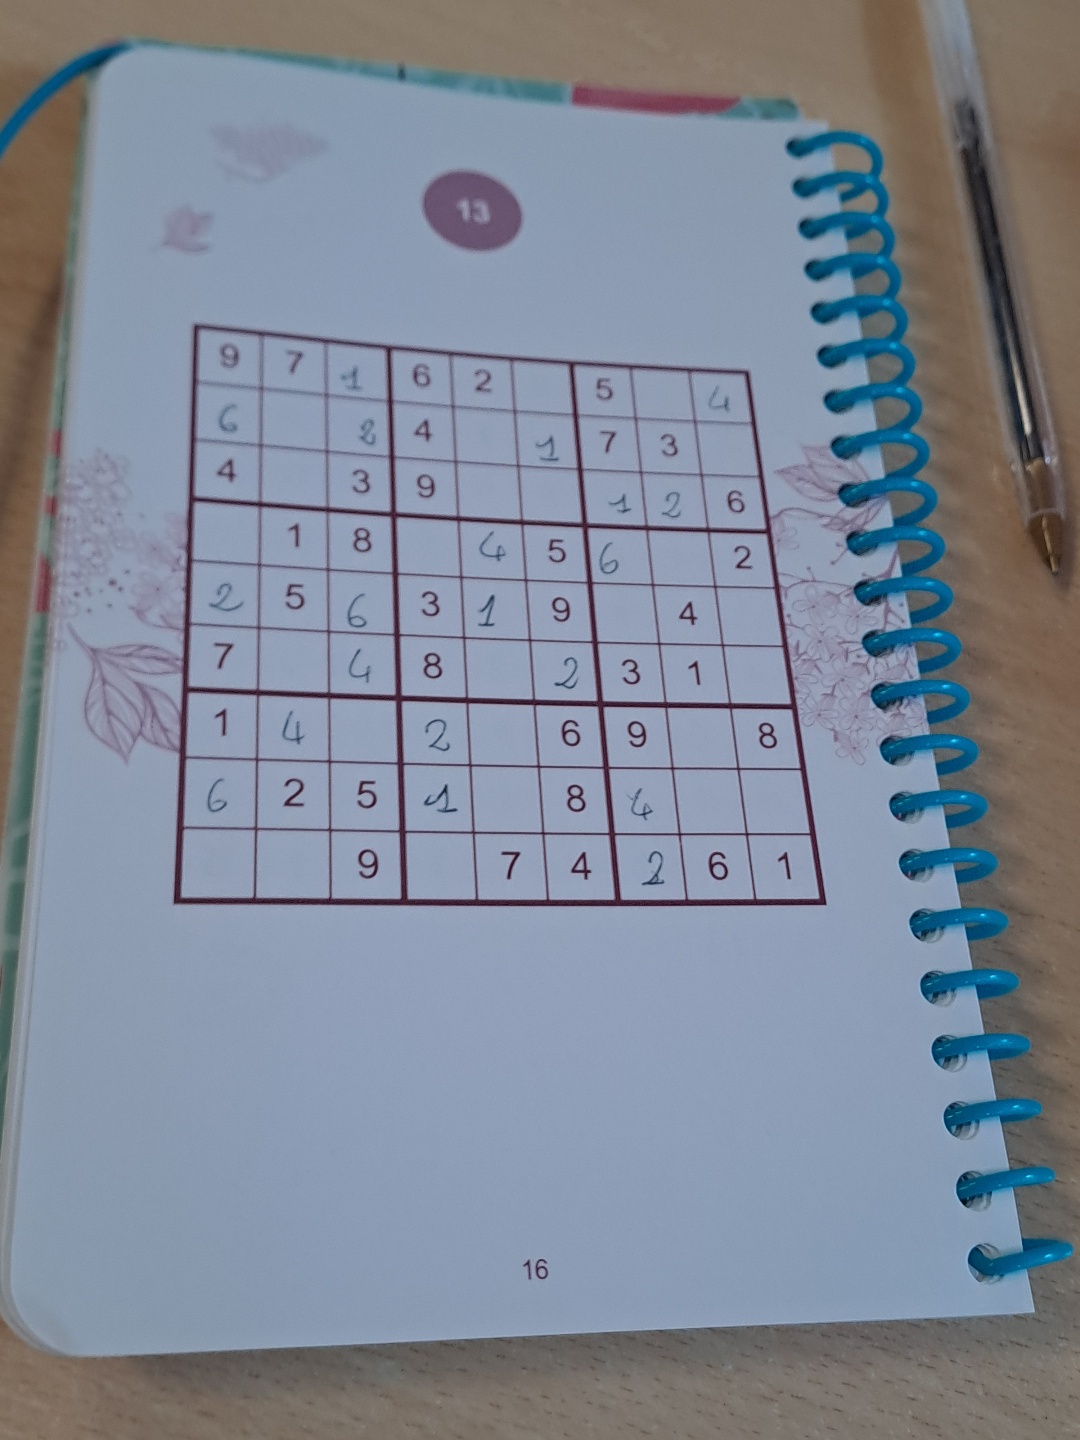 13
9 7 1 6 2 5 4
6 2 4 1 7 3
4 3 9 1 2 6
1 8 4 5 6 2
2 5 6 3 1 9 4
7 4 8 2 3 1
1 4 2 6 9 8
6 2 5 1 8 4
9 7 4 2 6 1
16